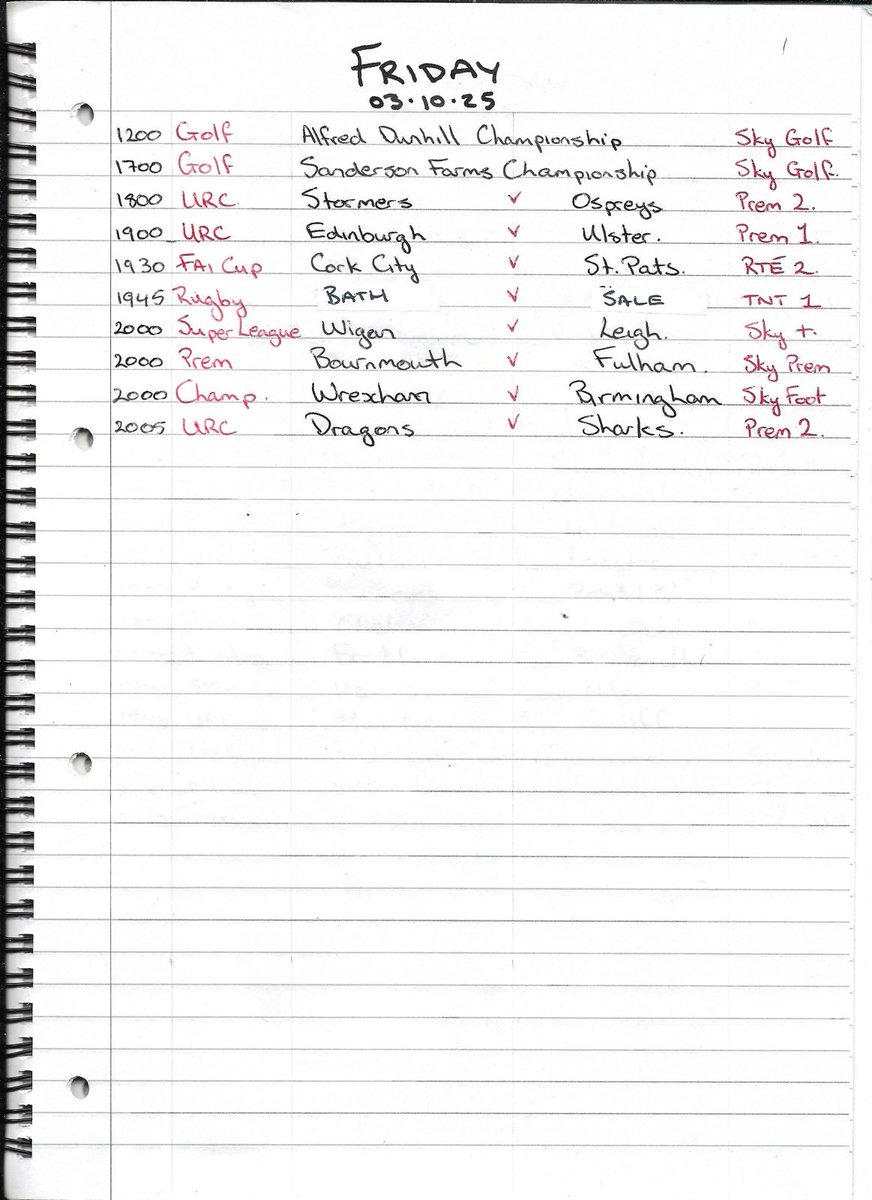 FRIDAY
03.10.25
1200 Golf Alfred Dunhill Championship Sky Golf
1700 Golf Sanderson Farms Championship Sky Golf.
1800 URC Stormers v Ospreys Prem 2.
1900 URC Edinburgh v Ulster. Prem 1.
1930 FAI Cup Cork City v St. Pats. RTÉ 2.
1945 Rugby BATH v SALE TNT 1
2000 Super League Wigan v Leigh. Sky +.
2000 Prem Bournmouth v Fulham. Sky Prem
2000 Champ. Wrexham v Birmingham Sky Foot
2005 URC Dragons v Sharks. Prem 2.